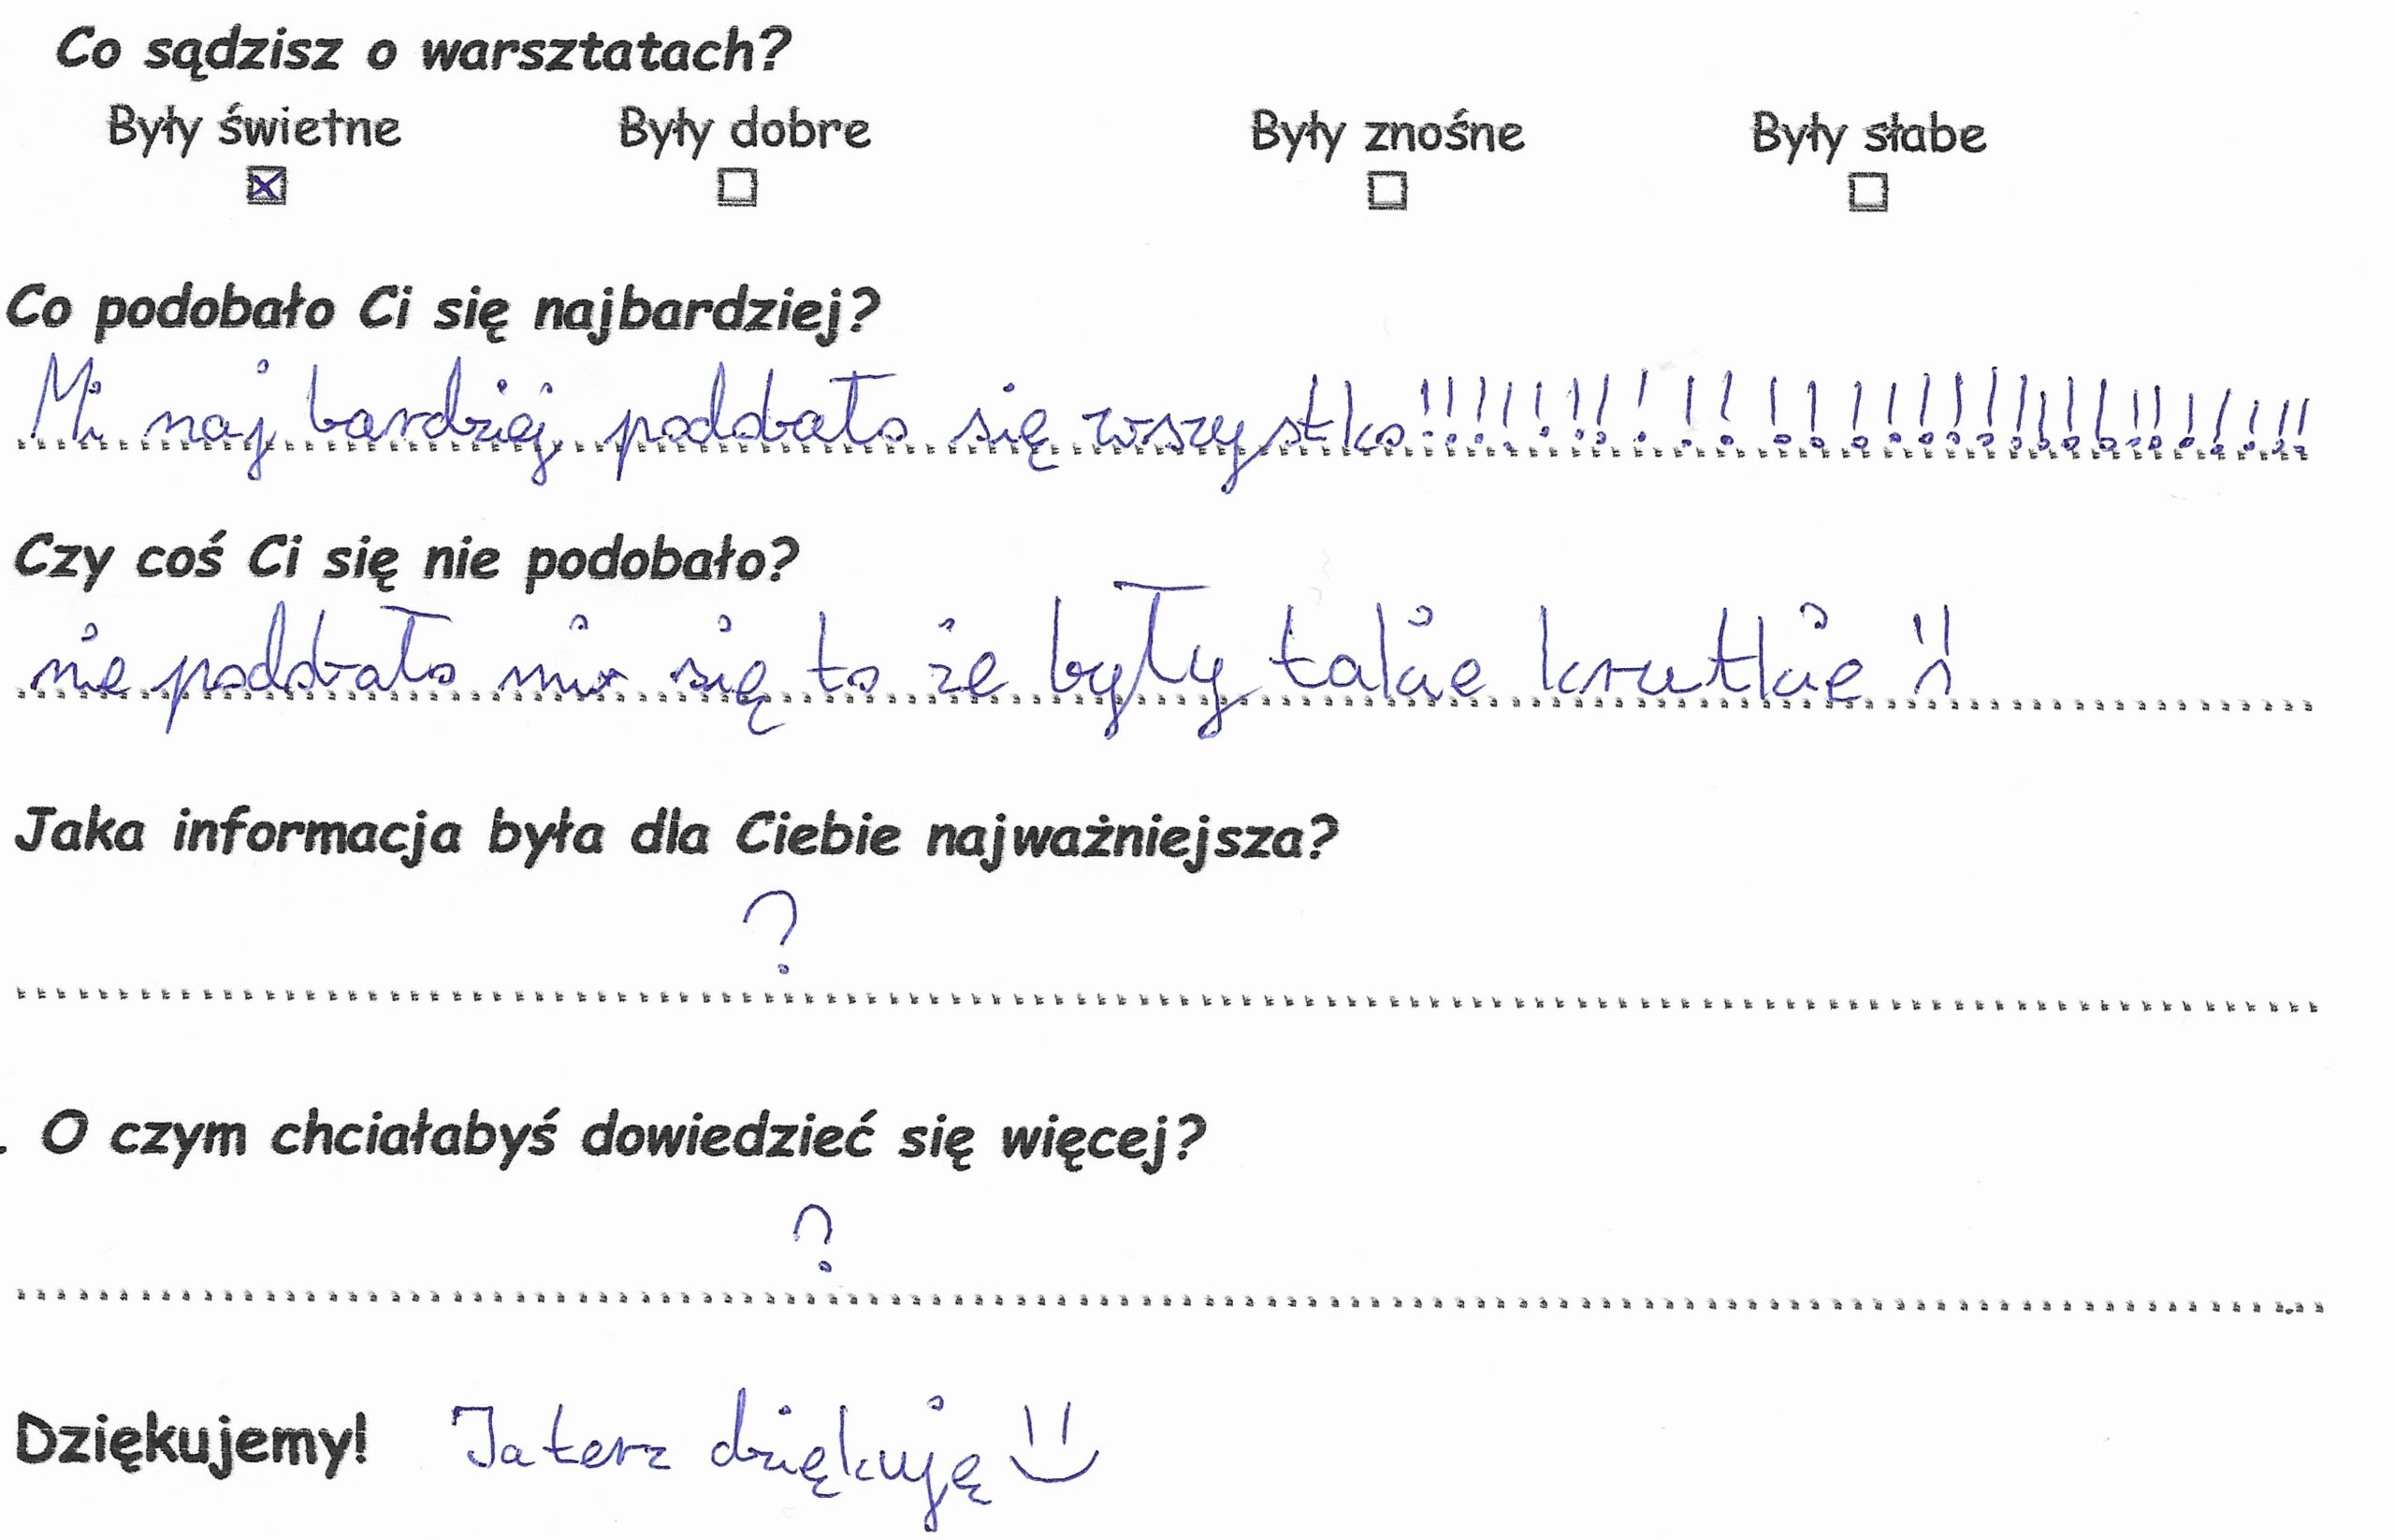 Co sądzisz o warsztatach?
Były świetne Były dobre Były znośne Były słabe
☒ ☐ ☐ ☐
Co podobało Ci się najbardziej?
Mi naj bardziej podobało się wszystko!!!!!!!!!!!!!!!!!!!!!!!!!!!!!!
Czy coś Ci się nie podobało?
nie podobało mi się to że były takie krutkie :(
Jaka informacja była dla Ciebie najważniejsza?
?
. O czym chciałabyś dowiedzieć się więcej?
?
Dziękujemy! Ja terz dziękuję :)